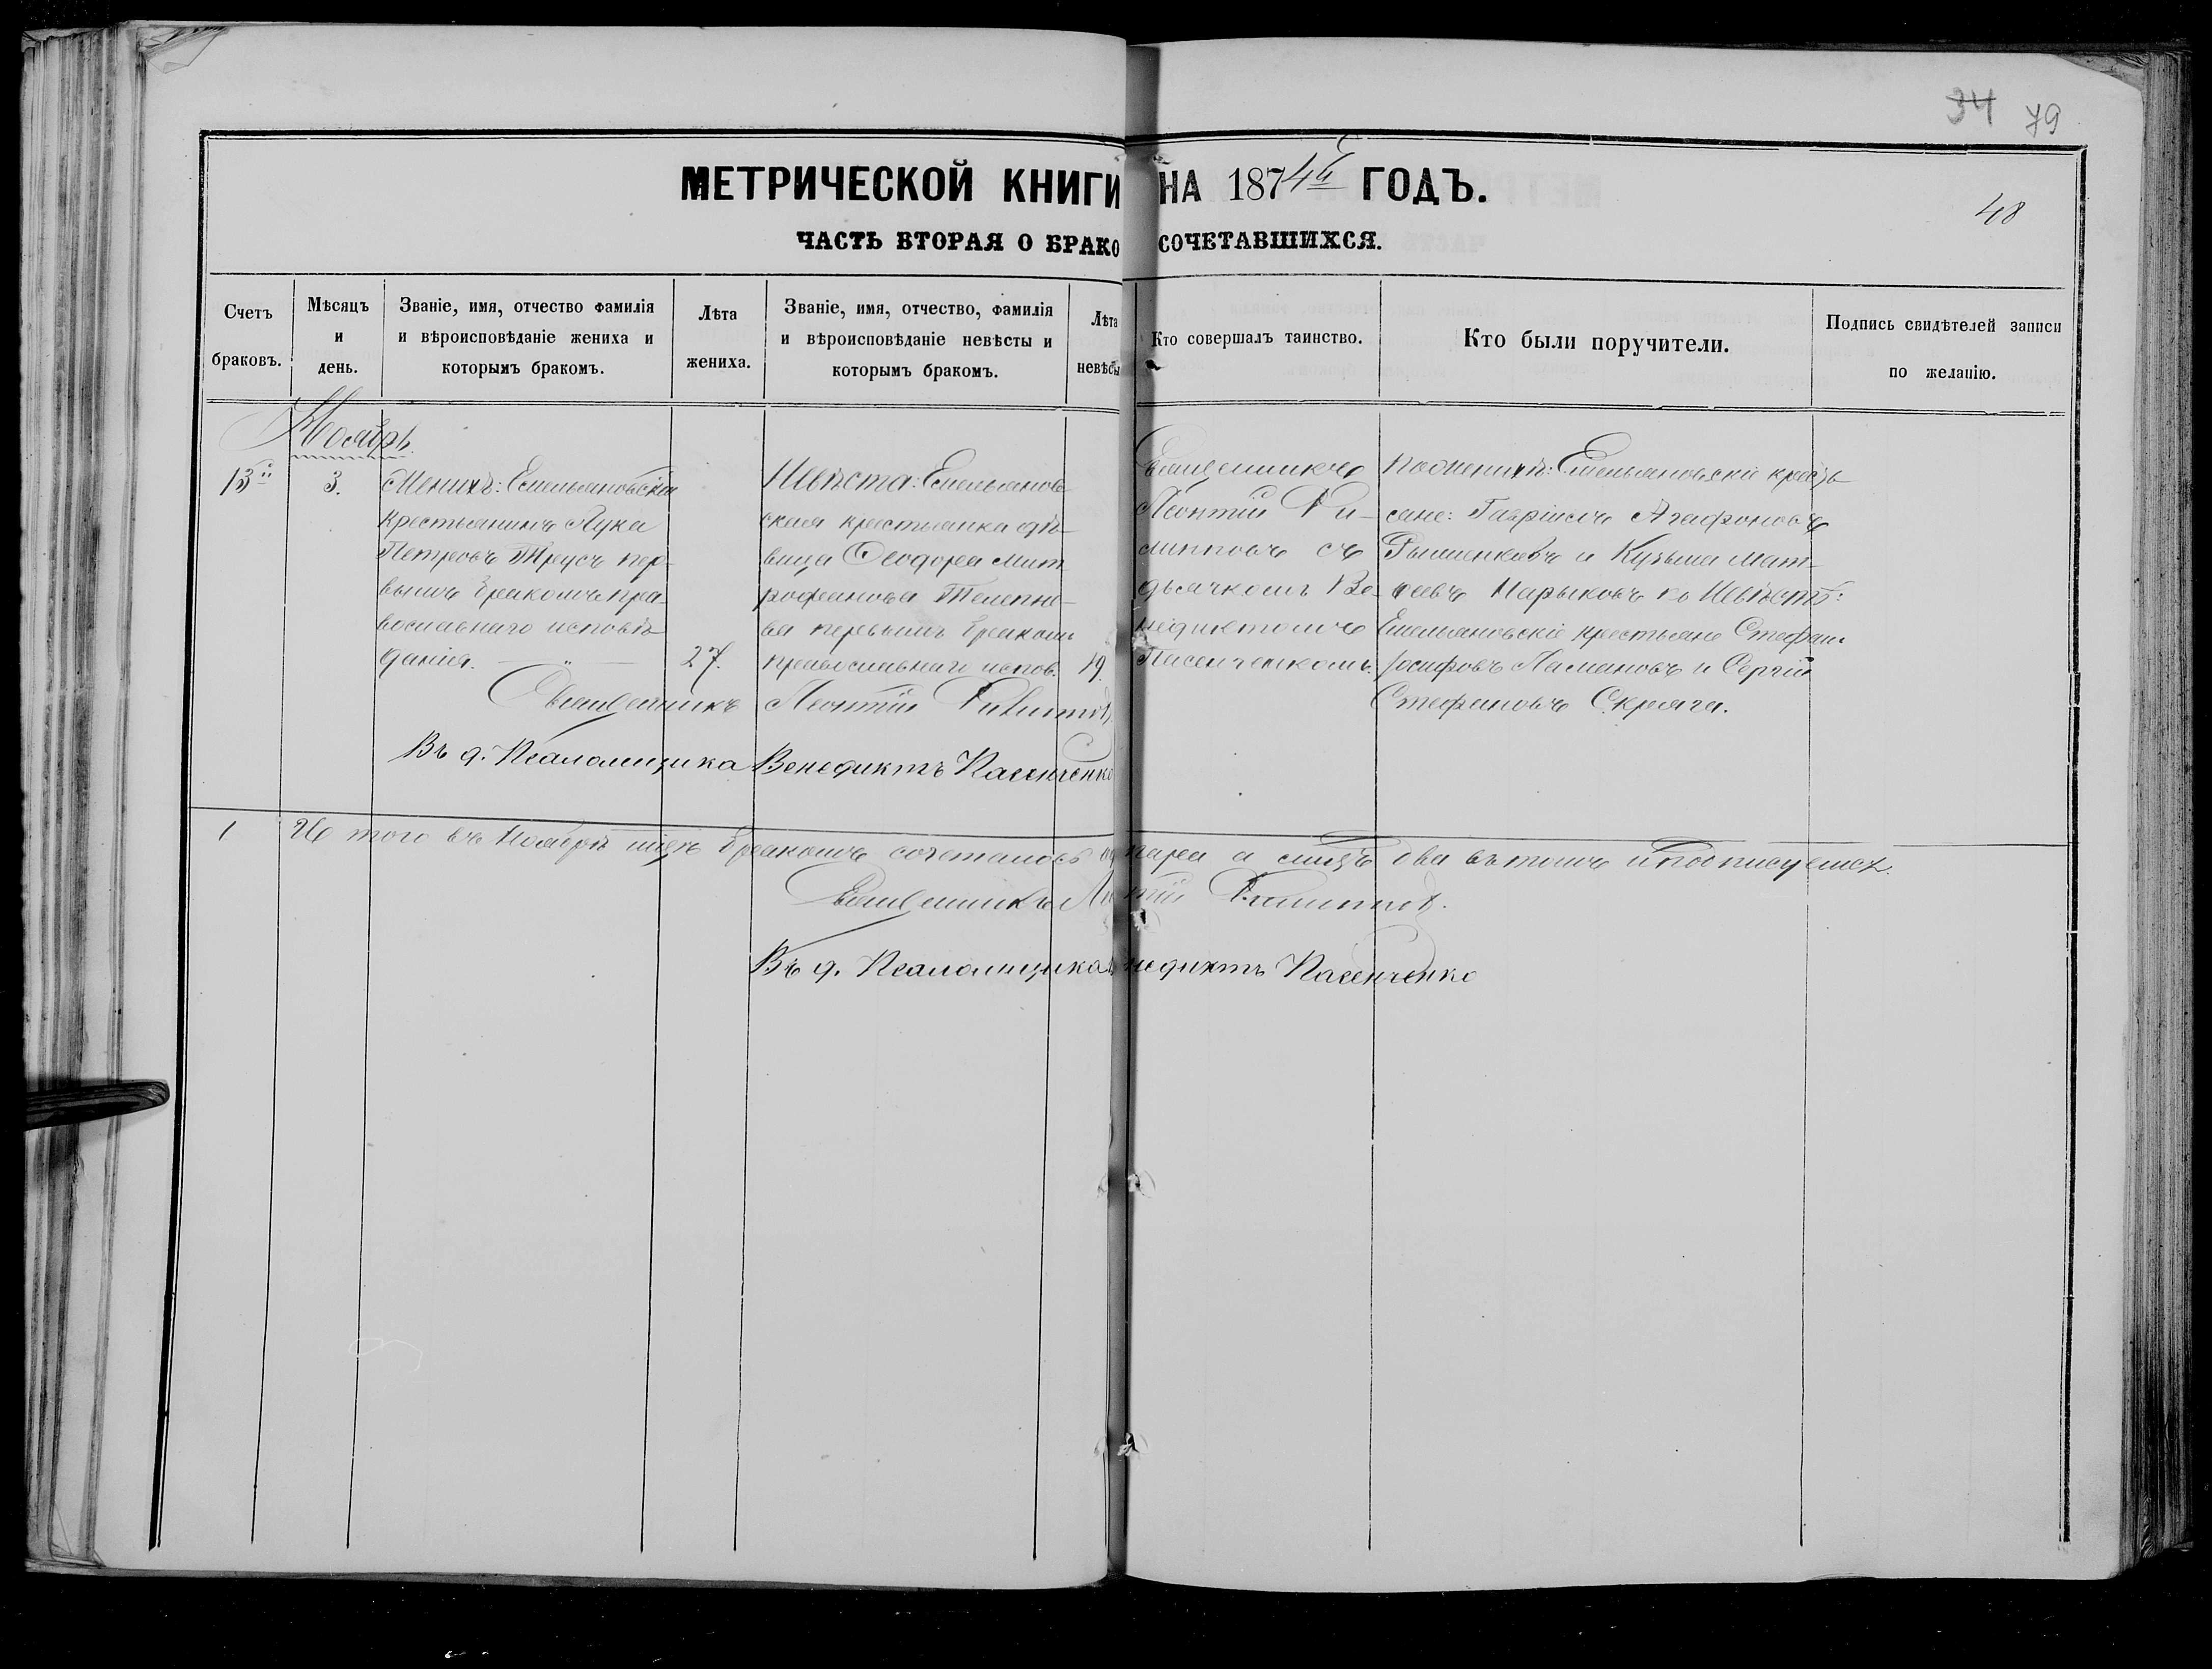 34 79
МЕТРИЧЕСКОЙ КНИГИ НА 1874й ГОДЪ.
48
ЧАСТЬ ВТОРАЯ О БРАКОСОЧЕТАВШИХСЯ.
Счетъ
браковъ.
Мѣсяцъ
и
день.
Званіе, имя, отчество фамилія
и вѣроисповѣданіе жениха и
которымъ бракомъ.
Лѣта
жениха.
Званіе, имя, отчество, фамилія
и вѣроисповѣданіе невѣсты и
которымъ бракомъ.
Лѣта
невѣсты
Кто совершалъ таинство.
Кто были поручители.
Подпись свидѣтелей записи
по желанію.
Ноябрь
13й
3.
Женихъ: Емельяновскій
крестьянинъ Лука
Петровъ Трусъ пер-
вымъ бракомъ пра-
вославнаго исповѣ-
данія.
27.
Невѣста: Емельянов-
ская крестьянка дѣ-
вица Ѳеодора Мит-
рофанова Телепне-
ва первымъ бракомъ
православнаго испов.
19.
Священникъ
Леонтій Фи-
липповъ съ
дьячкомъ Ве-
недиктомъ
Пасенченкомъ.
По женихѣ: Емельяновскіе кресть-
яне: Гавріилъ Агафоновъ
и Кузьма Мат-
феевъ Марыковъ по Невѣстѣ:
Емельяновскіе крестьяне Стефанъ
Іосифовъ Ламановъ и Сергій
Стефановъ Скряга.
Священникъ Леонтій Филиппов
Въ д. Псаломщика Венедиктъ Пасенченко
1
Итого въ Ноябрѣ мцѣ бракомъ сочеталось од пара а лицъ два въ томъ и подписуемся.
Священникъ Леонтій Филиппов.
Въ д. Псаломщика Венедиктъ Пасенченко